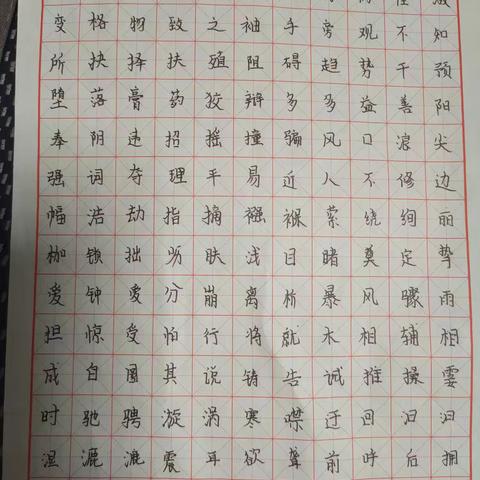 变格物致之袖手旁观不知
所抉择扶殖阻碍趋势干预
堕落膏药狡辩多多益善阳
奉阴违招摇撞骗风口浪尖
强词夺理平易近人不修边
幅浩劫指摘襁褓萦绕绚丽
枷锁拙劣肤浅目睹奠定挚
爱钟爱分崩离析暴风骤雨
担惊受怕行将就木相辅相
成自圆其说铸告诫推操霎
时驰骋漩涡寒噤迂回汩汩
湿漉漉震耳欲聋前呼后拥